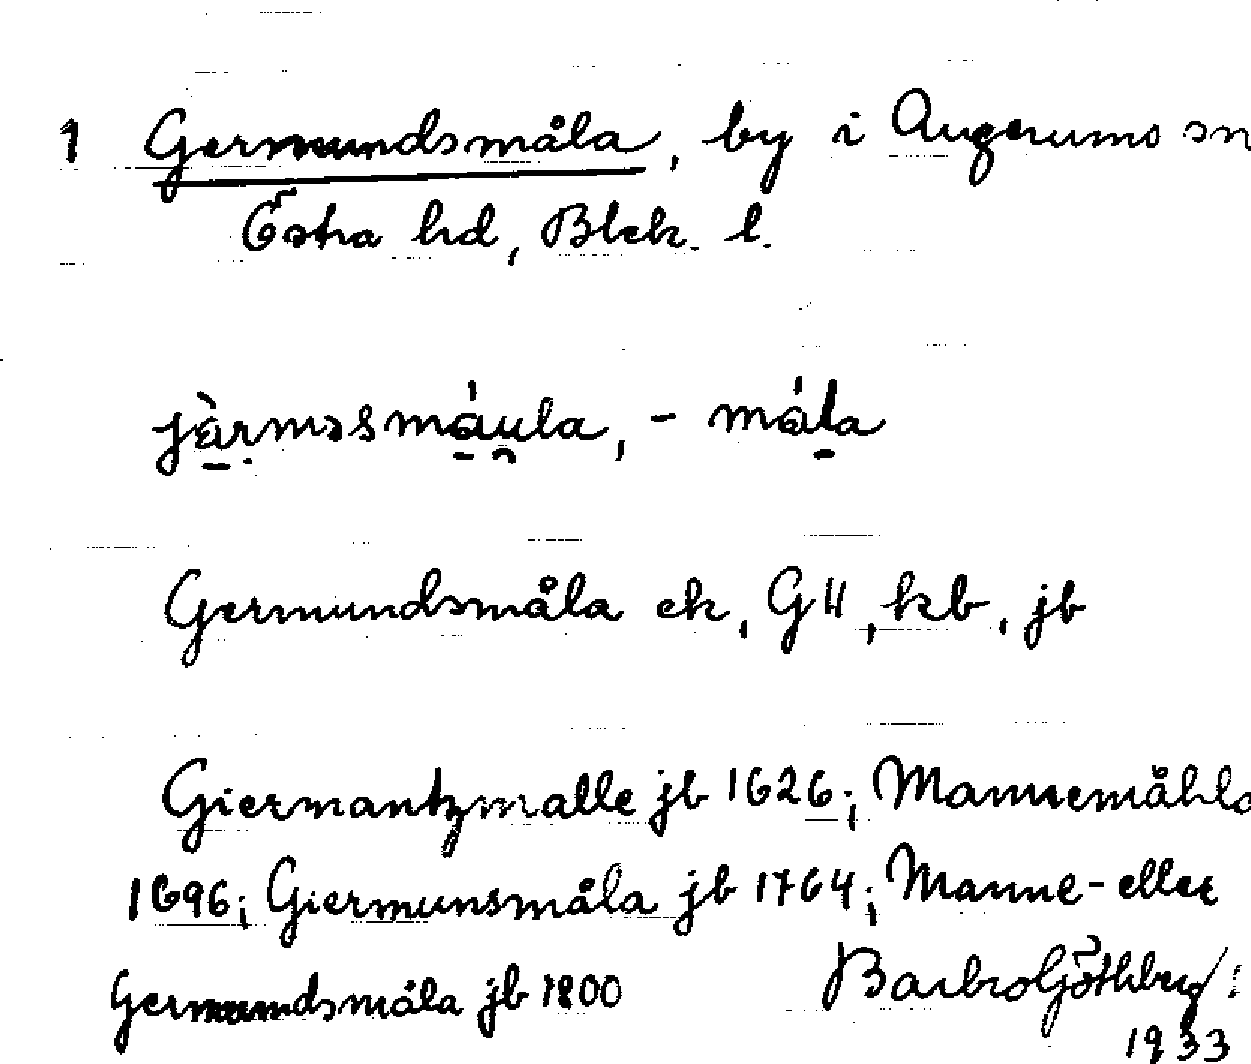 1 Germundsmåla, by i Augerums sn
Östra hd, Blek. l.
jàrməsmáula, - måla
Germundsmåla ek, G4, kb, jb
Giermantzmalle jb 1626; Mannemåhla
1696; Giermunsmåla jb 1764; Manne- eller
Germundsmåla jb 1800
Barbro Göthberg
1933